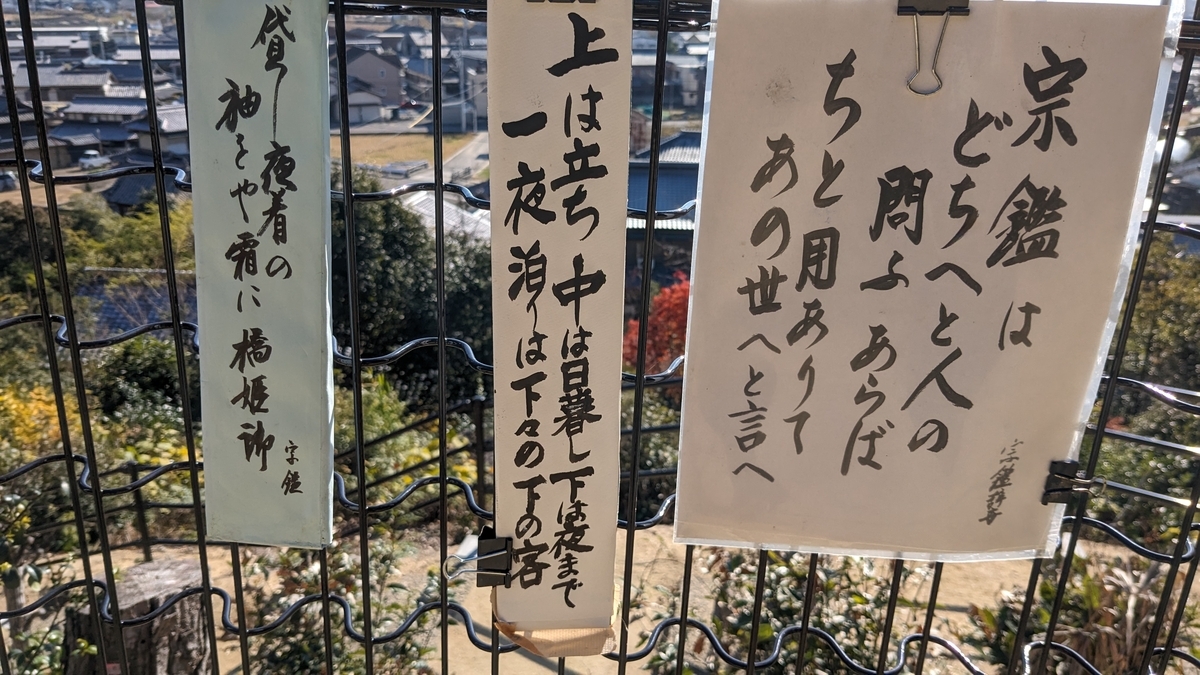 宗鑑は
どちへと人の
問ふあらば
ちと用ありて
あの世へと言へ
宗鑑辞世
上は立ち 中は日暮し 下は夜まで
一夜泊りは下々の下の客
貸し夜着の
袖をや霜に橋姫御
宗鑑